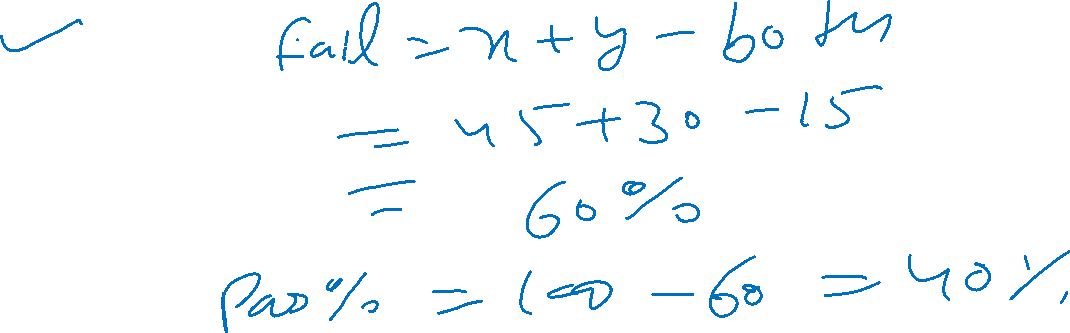 ✓ fail = x + y - both
= 45 + 30 - 15
= 60%
Pass% = 100 - 60 = 40%